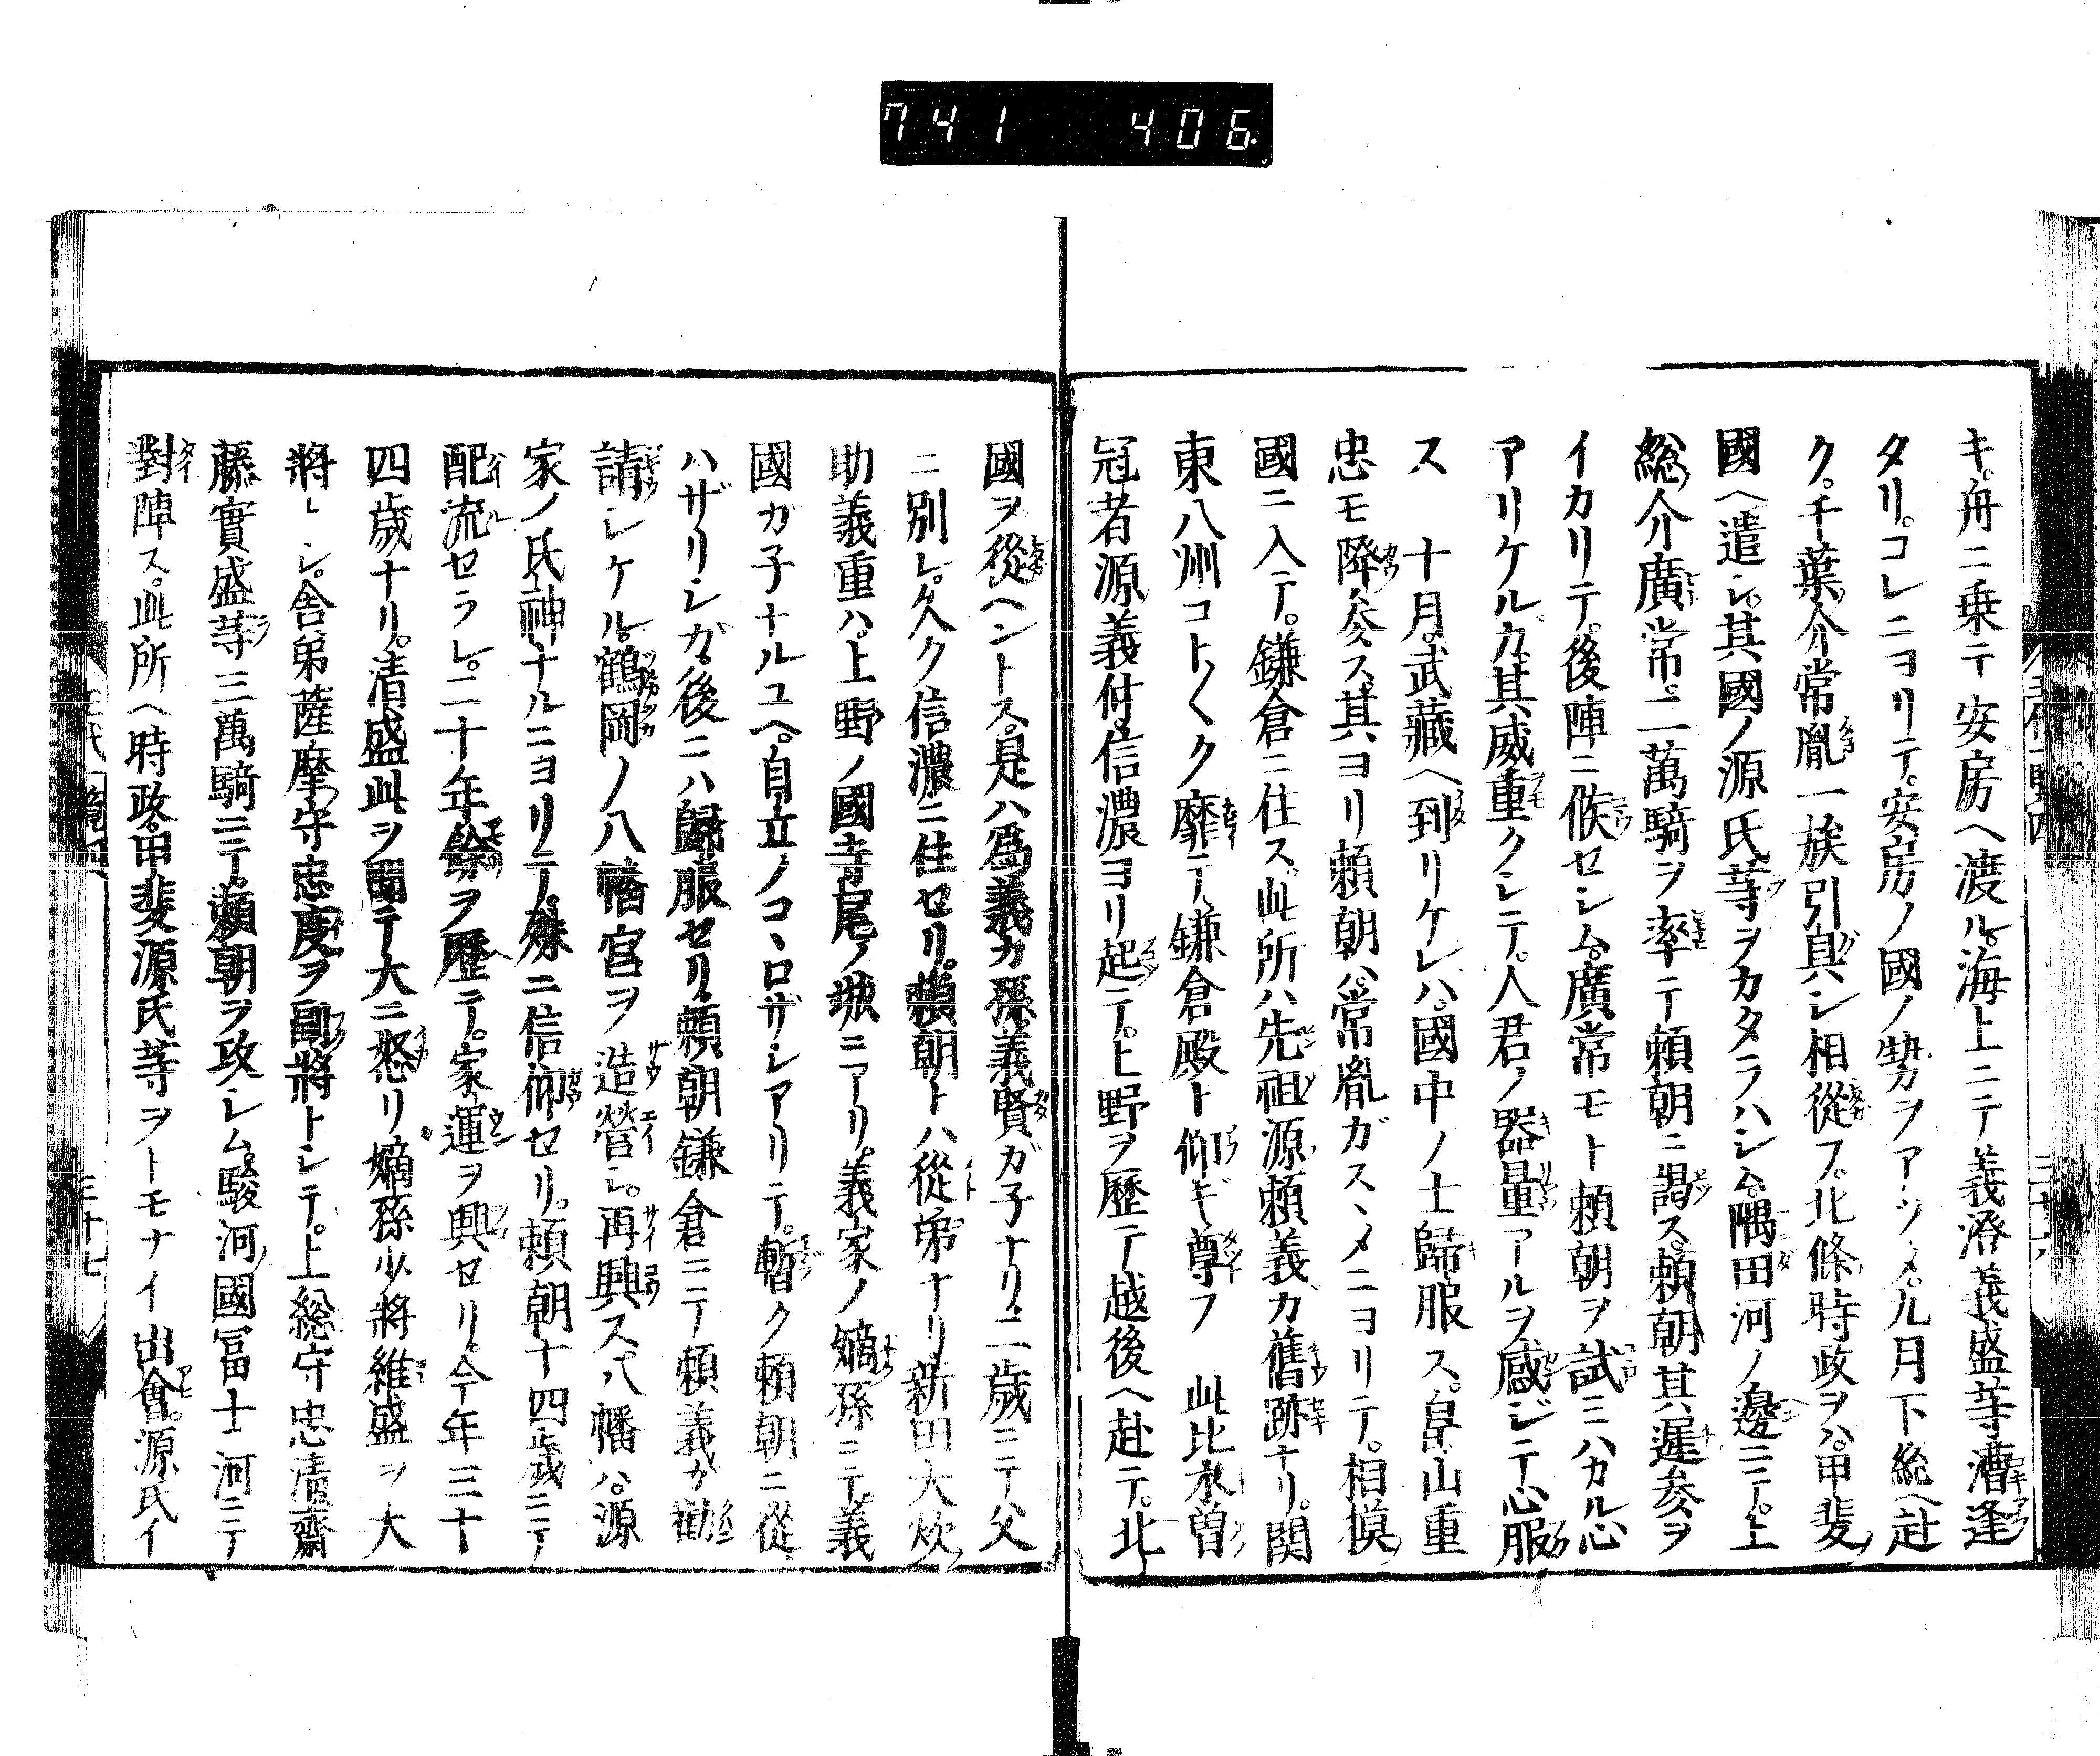 741 406
キ。舟ニ乗テ安房ヘ渡ル。海上ニテ義澄義盛等漕逢
タリ。コレニヨリテ。安房ノ國ノ勢ヲアツメ。九月下総ヘ赴
ク。千葉介常胤一族引具シ相從フ。北條時政ヲハ。甲斐
國ヘ遣シ。其國ノ源氏等ヲカタラハシム。隅田河ノ邊ニテ。上
総介廣常。二萬騎ヲ率ニテ頼朝ニ謁ス。頼朝其遲参ヲ
イカリテ。後陣ニ候セシム。廣常モト頼朝ヲ試ミハカル心
アリケルカ。其威重クシテ。人君ノ器量アルヲ感ジテ心服
ス 十月。武藏ヘ到リケレハ。國中ノ士歸服ス。畠山重
忠モ降参ス。其ヨリ頼朝ハ。常胤ガスヽメニヨリテ。相摸
國ニ入テ。鎌倉ニ住ス。此所ハ先祖源頼義カ舊跡ナリ。関
東八州コト〱ク靡テ。鎌倉殿ト仰ギ尊フ 此比木曽
冠者源義仲。信濃ヨリ起テ。上野ヲ歴テ越後ヘ赴テ。北
國ヲ從ヘントス。是ハ爲義カ孫。義賢ガ子ナリ。二歳ニテ父
ニ別レ。久ク信濃ニ住セリ。頼朝トハ從弟ナリ 新田大炊
助義重ハ。上野ノ國寺尾ノ城ニアリ。義家ノ嫡孫ニテ。義
國カ子ナルユヘ。自立ノコヽロザシアリテ。暫ク頼朝ニ從
ハザリシガ。後ニハ歸服セリ。頼朝鎌倉ニテ頼義カ勸
請シケル。鶴岡ノ八幡宮ヲ造營シ。再興ス。八幡ハ。源
家ノ氏神ナルニヨリテ。殊ニ信仰セリ。頼朝十四歳ニテ
配流セラレ。二十年餘ヲ歴テ。家運ヲ興セリ。今年三十
四歳ナリ。清盛此ヲ聞テ大ニ怒リ嫡孫少將維盛ヲ大
將トシ。舎弟薩摩守忠度ヲ副將トシテ。上総守忠清齋
藤實盛等三萬騎ニテ。頼朝ヲ攻シム。駿河國冨士河ニテ
對陣ス。此所ヘ時政。甲斐源氏等ヲトモナイ出會。源氏イ